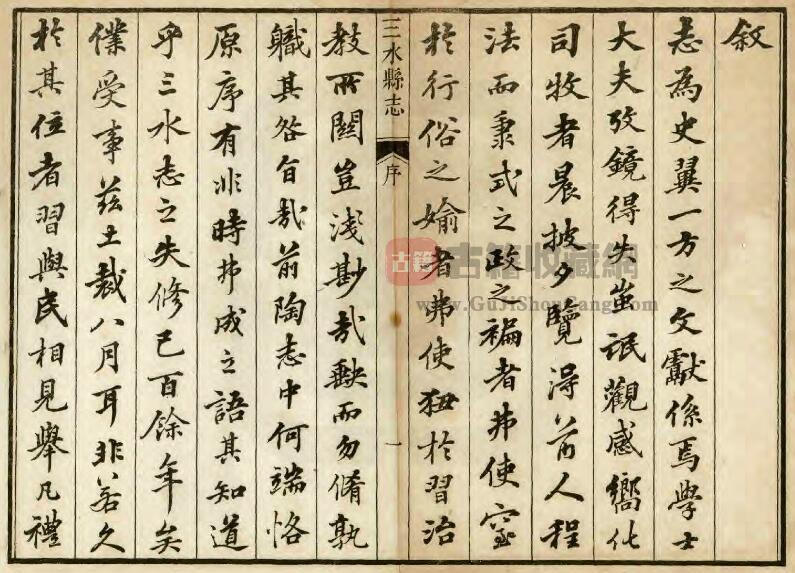 敘
志為史翼一方之文獻係焉學士
大夫攷鏡得失蚩氓觀感嚮化
司牧者晨披夕覽得前人程
法而秉式之政之褊者弗使窒
於行俗之媮者弗使狃於習治
三水縣志
序
一
教所關豈淺尠哉缺而勿脩孰
職其咎旨哉前陶志中何端恪
原序有非時弗成之語其知道
乎三水志之失修已百餘年矣
僕受事茲土裁八月耳非若久
於其位者習與民相見舉凡禮
古籍
古籍收藏網
www.GuJiShouCang.com